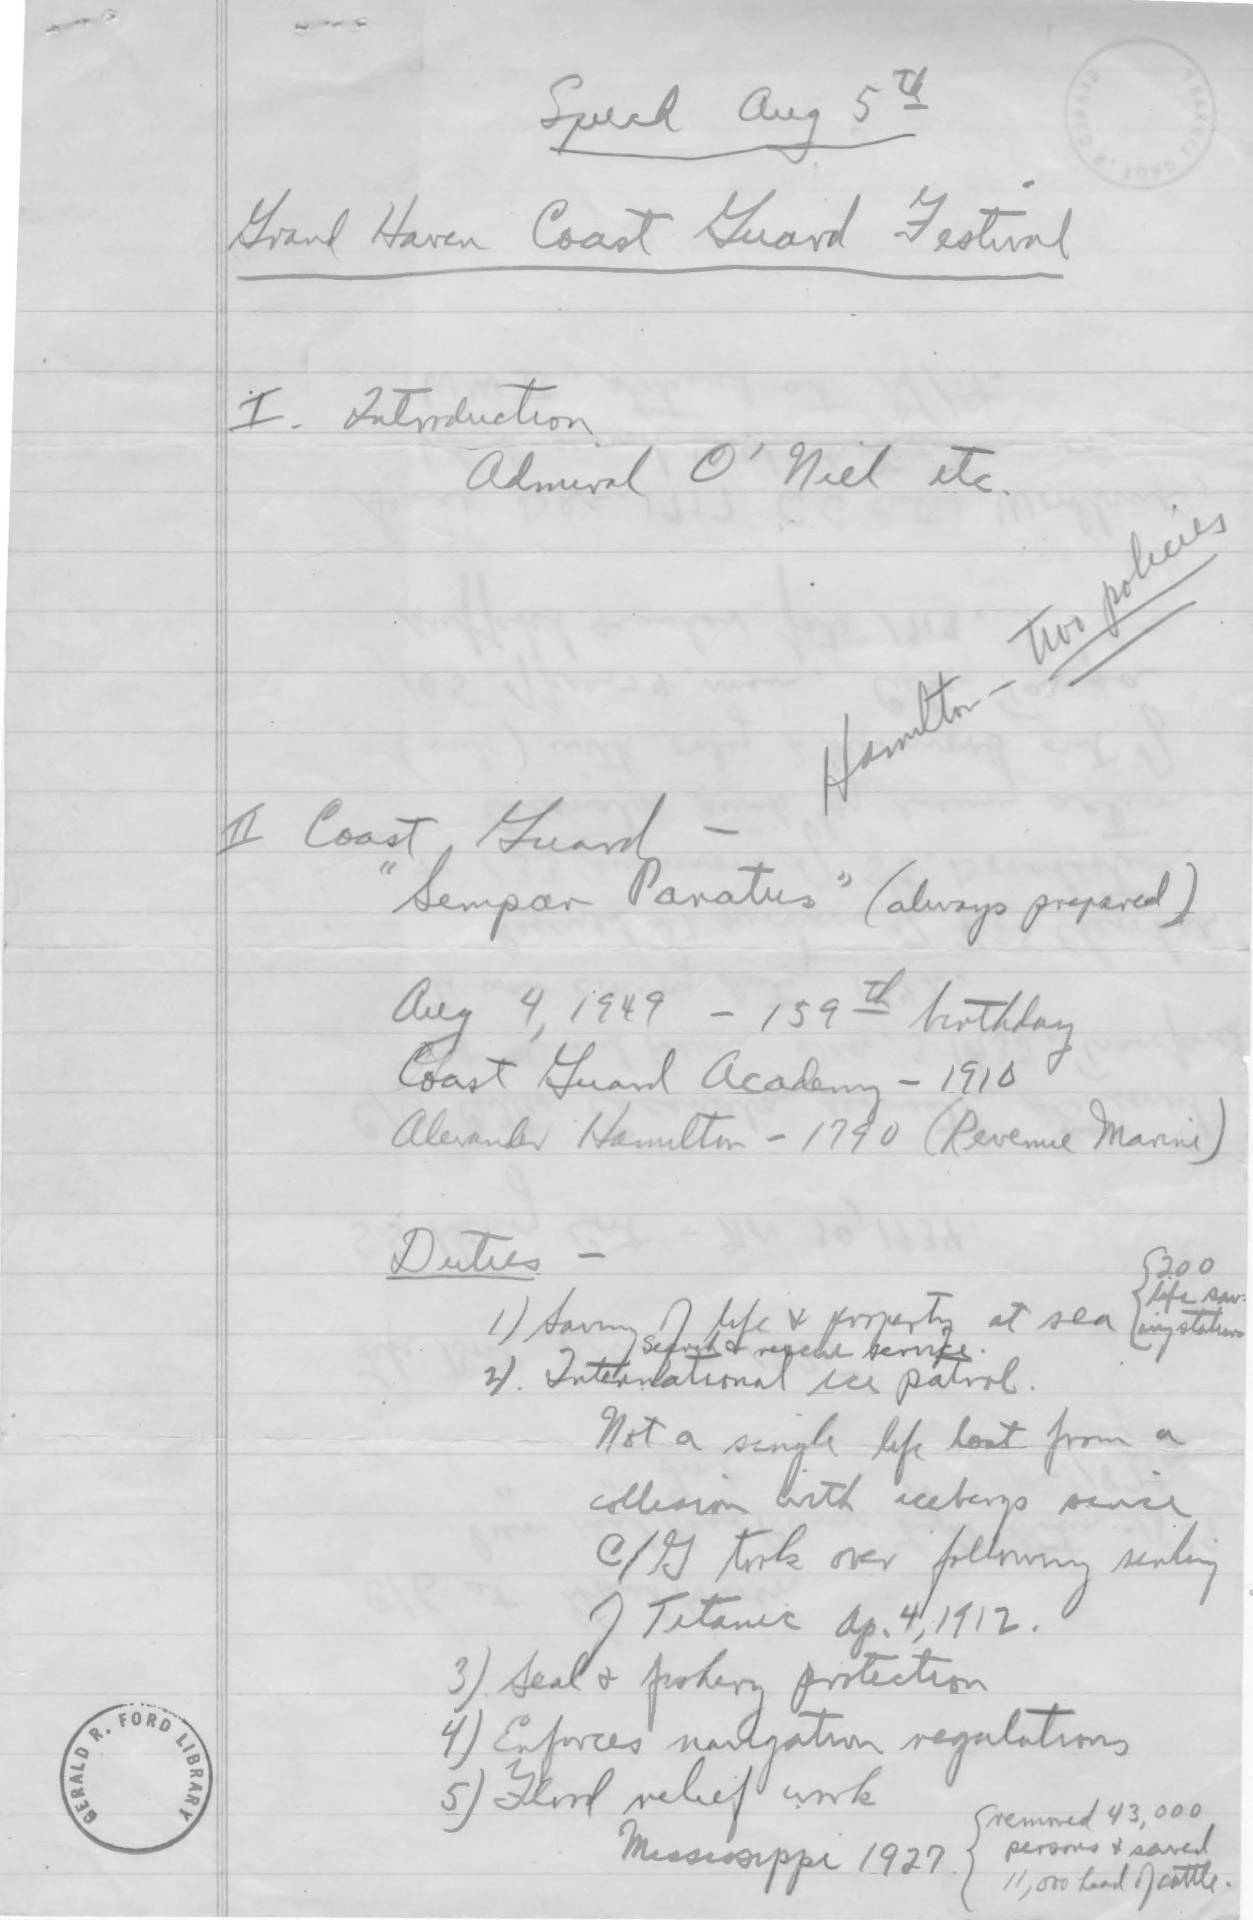 Speech Aug 5th
Grand Haven Coast Guard Festival
I. Introduction
Admiral O'Niel etc.
Hamilton - two policies
II Coast Guard -
"Sempar Paratus" (always prepared)
Aug 4, 1949 - 159th birthday
Coast Guard Academy - 1910
Alexander Hamilton - 1790 (Revenue Marine)
Duties -
1) Saving of life & property at sea {200 life sav-
ing stations
Search & rescue service.
2). International ice patrol.
Not a single life lost from a
collision with icebergs since
C/G took over following sinking
of Titanic Ap. 4, 1912.
3) Seal & fishery protection
4) Enforces navigation regulations
5) Flood relief work
Mississippi 1927 {removed 43,000
persons & saved
11,000 head of cattle.
GERALD R. FORD LIBRARY